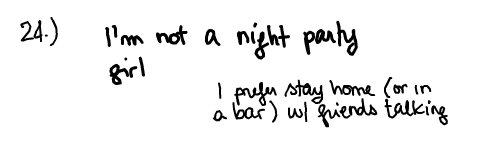 24.) I'm not a night party
girl
I prefer stay home (or in
a bar) w/ friends talking